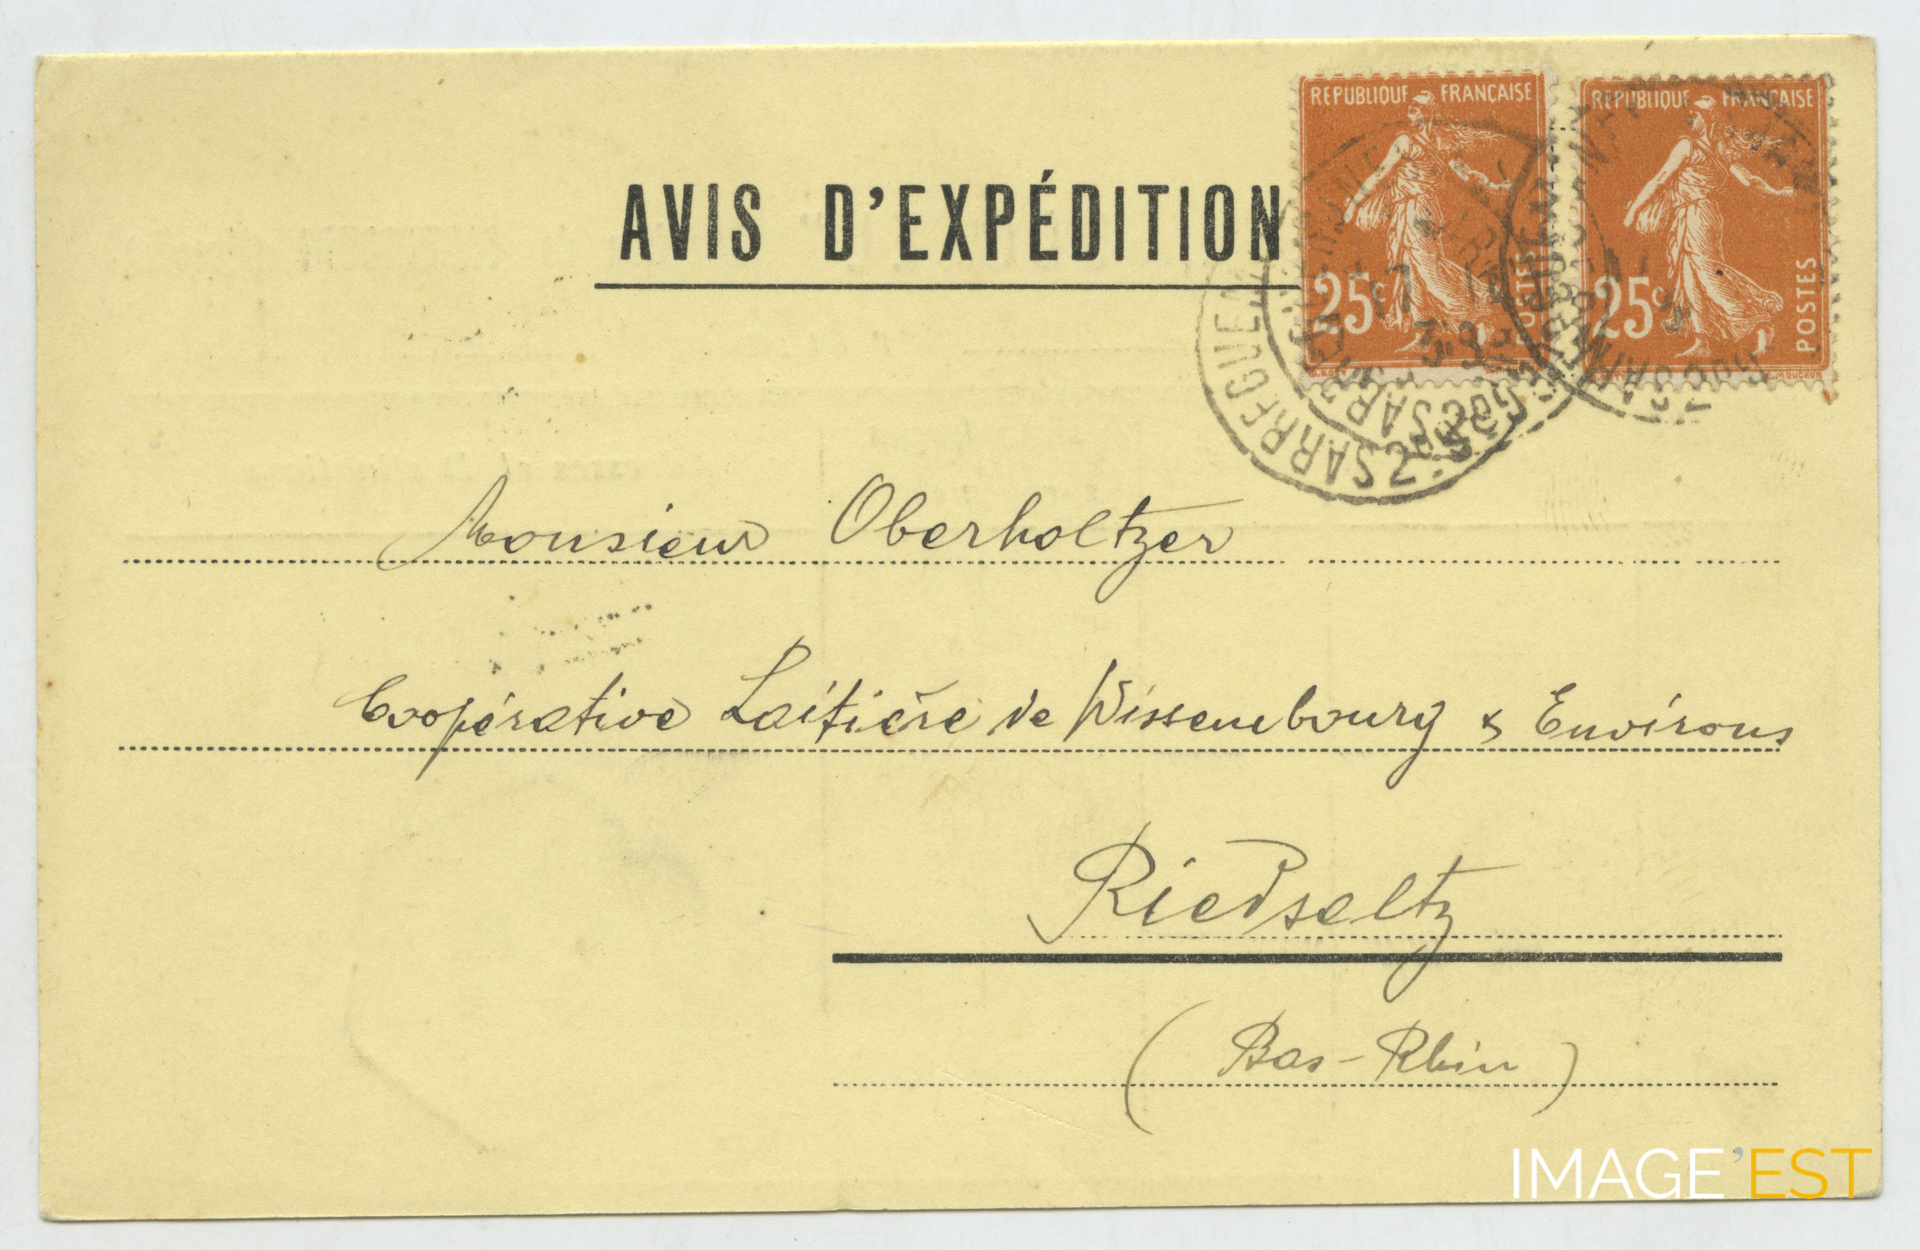 RÉPUBLIQUE FRANÇAISE
25c
POSTES
RÉPUBLIQUE FRANÇAISE
25c
POSTES
AVIS D'EXPÉDITION
SARREGUEMINES
Monsieur Oberholtzer
Coopérative Laitière de Wissembourg & Environs
Riedseltz
(Bas-Rhin)
IMAGE'EST